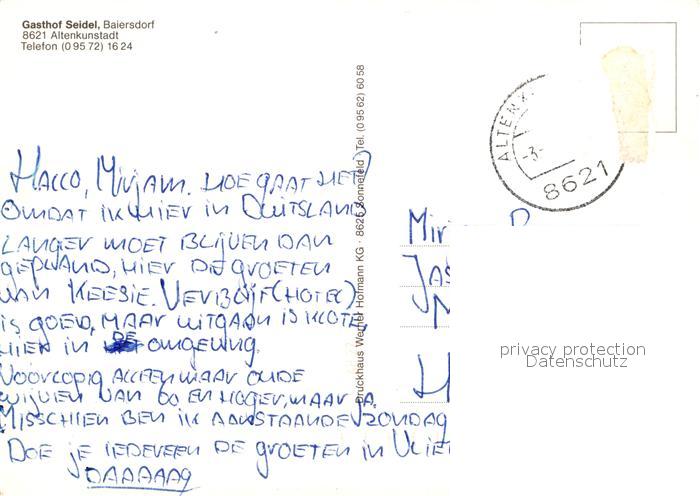 Gasthof Seidel, Baiersdorf
8621 Altenkunstadt
Telefon (0 95 72) 16 24
Druckhaus Werner Hofmann KG · 8625 Sonnefeld Tel. (0 95 62) 60 58
ALTENK
-3.-
8621
HALLO, Mirjam. HOE GAAT HET?
OMDAT IK HIER IN DUITSLAND
LANGER MOET BLIJVEN DAN
GEPLAND, HIER DE GROETEN
VAN KEESIE. VERBLIJF (HOTEL)
IS GOED, MAAR UITGAAN IS KLOTE,
HIER IN DE OMGEVING.
VOORLOPIG ALLEEN MAAR OUDE
WIJVEN VAN 60 EN HOGER, MAAR JA.
MISSCHIEN BEN IK AANSTAANDE ZONDAG
DOE JE IEDEREEN DE GROETEN IN VLIET
DAAAAAG
Mir
JAS
H
privacy protection
Datenschutz